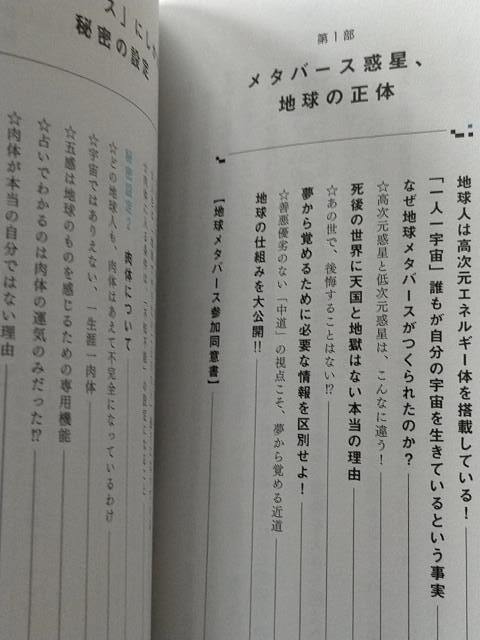 第1部
メタバース惑星、
地球の正体
地球人は高次元エネルギー体を搭載している!
「一人一宇宙」誰もが自分の宇宙を生きているという事実
なぜ地球メタバースがつくられたのか?
☆高次元惑星と低次元惑星は、こんなに違う!
死後の世界に天国と地獄はない本当の理由
☆あの世で、後悔することはない!?
夢から覚めるために必要な情報を区別せよ!
☆善悪優劣のない「中道」の視点こそ、夢から覚める近道
地球の仕組みを大公開!!
【地球メタバース参加同意書】
ス」にし
秘密の設定
秘密設定2 肉体について
☆どの地球人も、肉体はあえて不完全になっているわけ
☆宇宙ではありえない、一生涯一肉体
☆五感は地球のものを感じるための専用機能
☆占いでわかるのは肉体の運気のみだった!?
☆肉体が本当の自分ではない理由